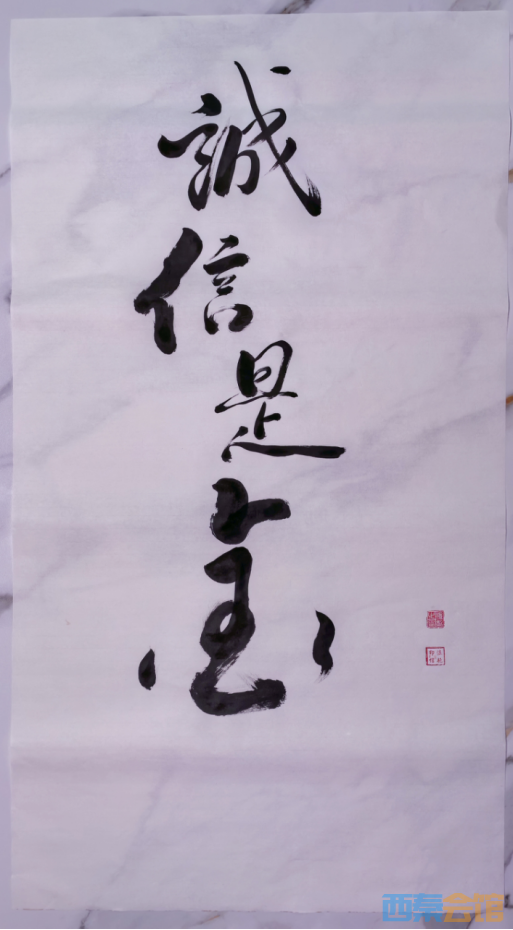 誠信是金
西秦会馆